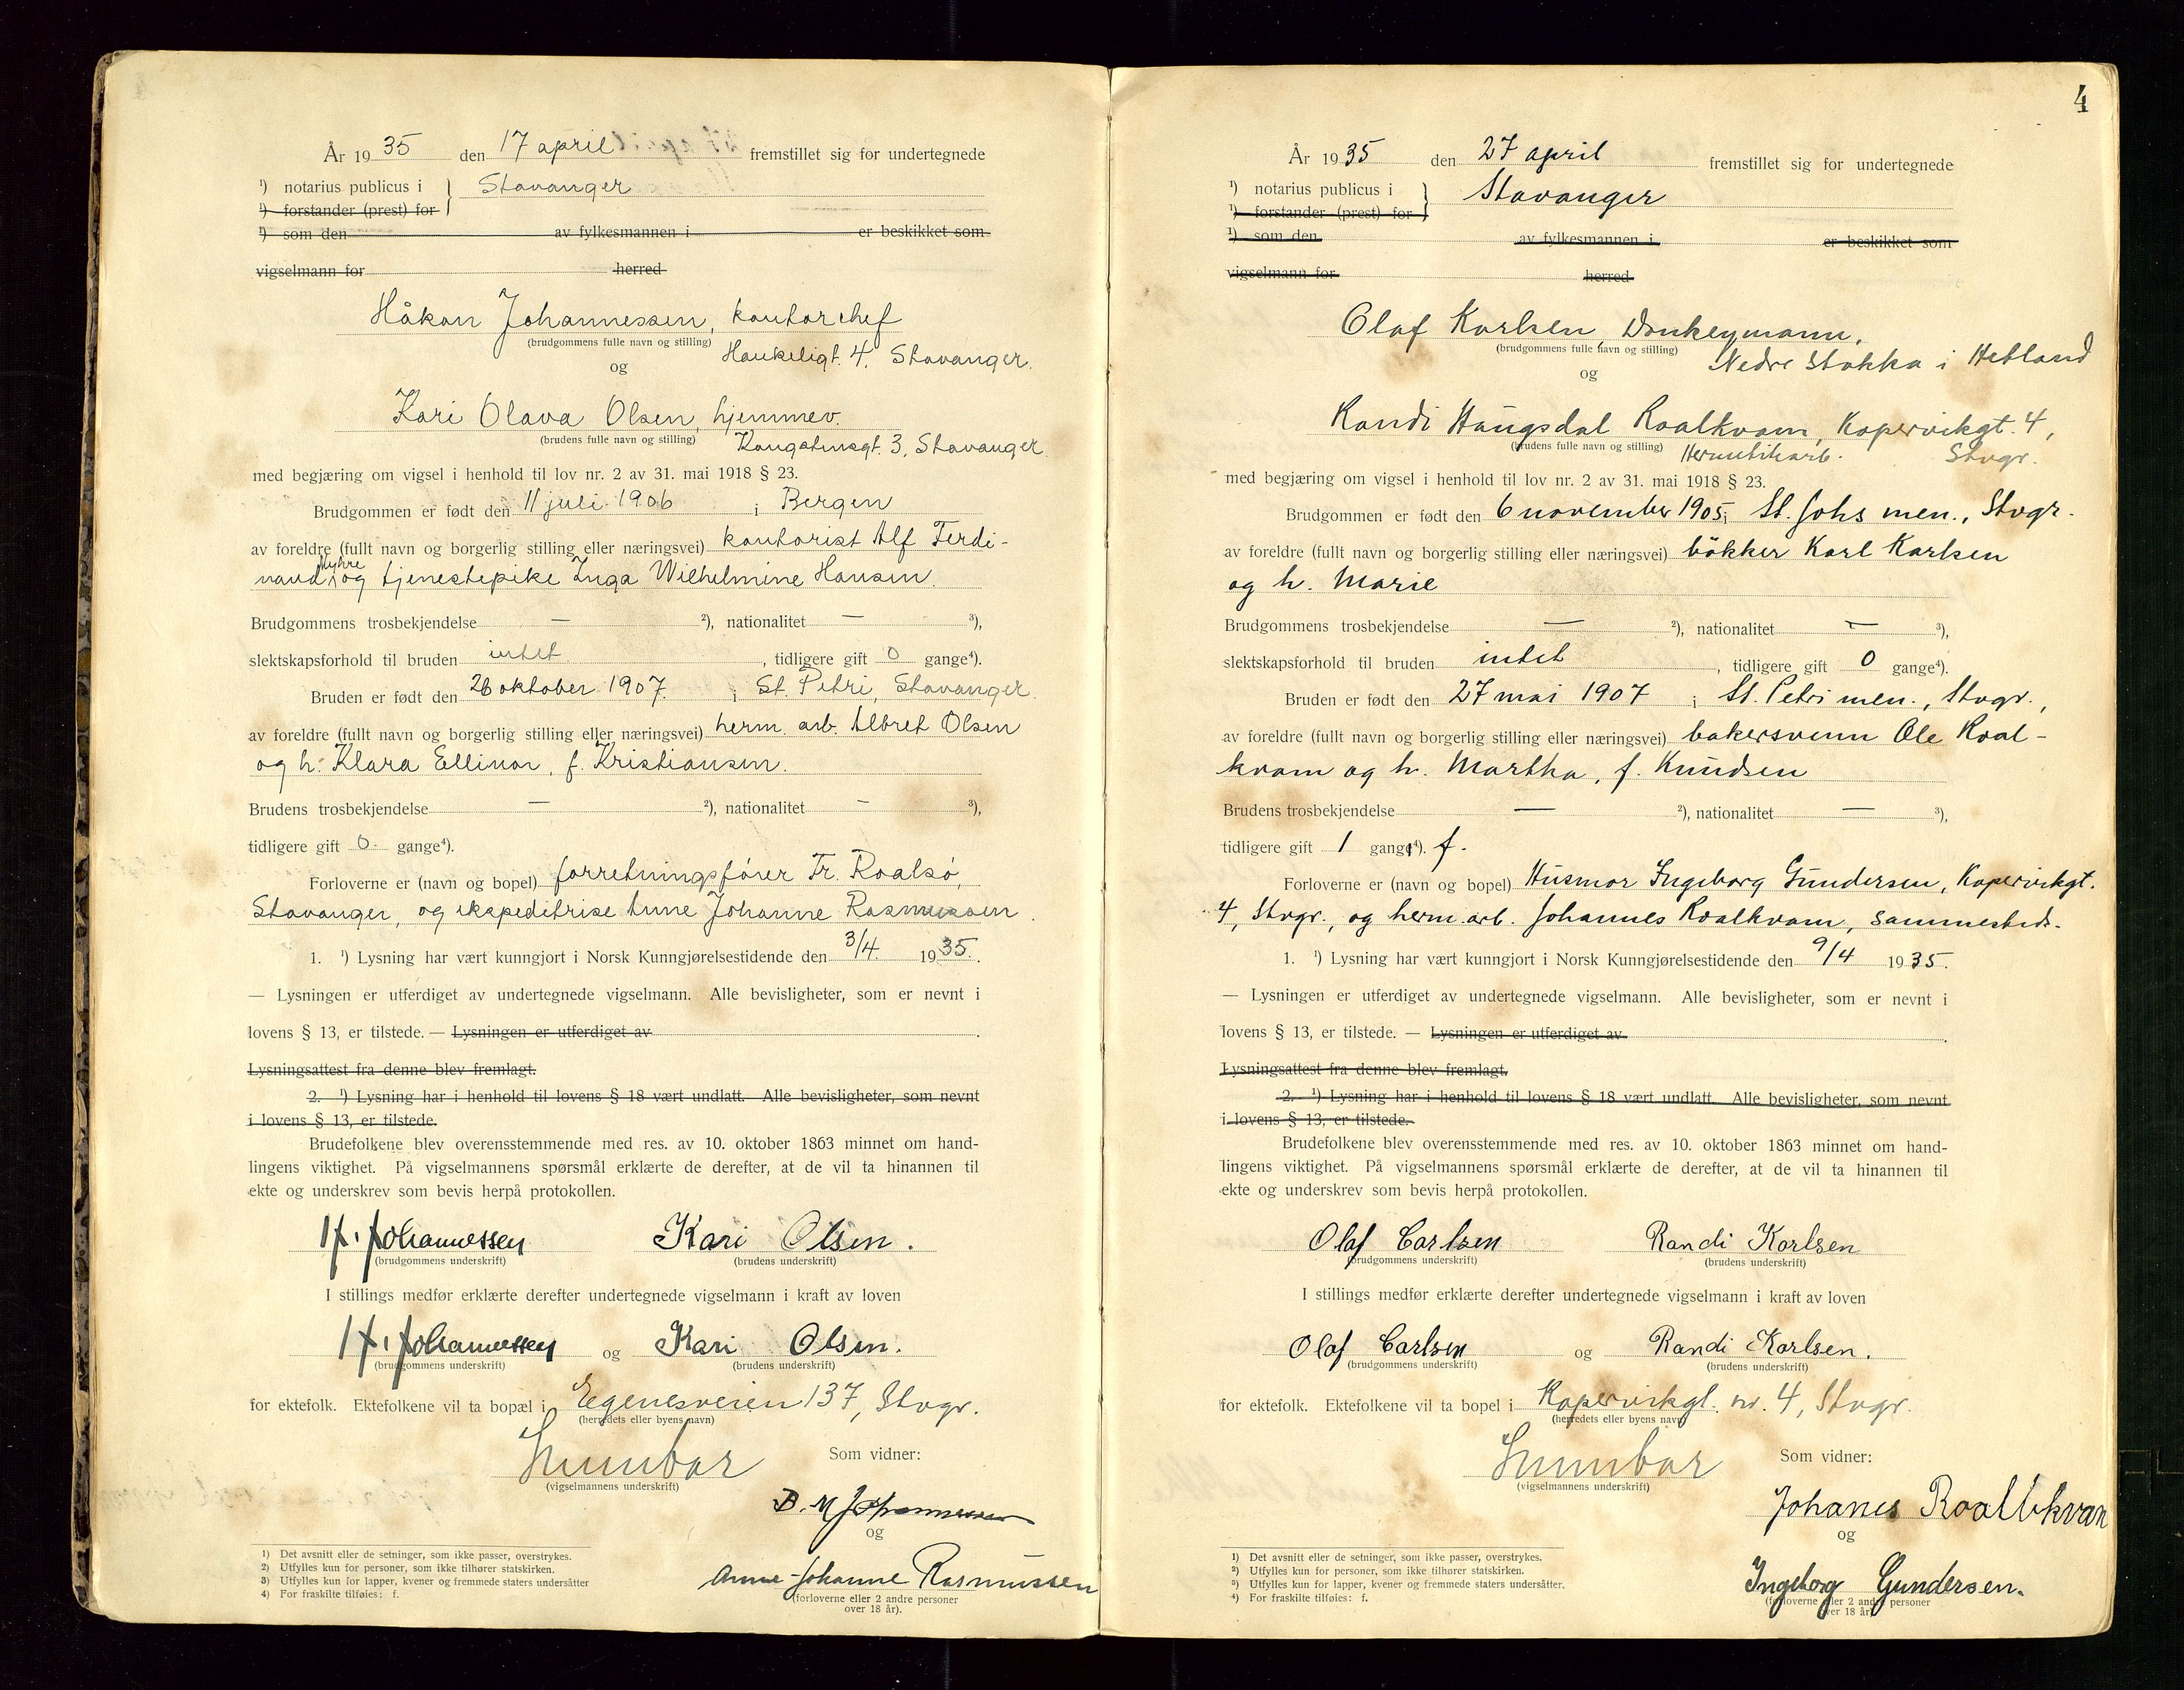 År 1935 den 17 april fremstillet sig for undertegnede
¹) notarius publicus i } Stavanger
¹) forstander (prest) for
¹) som den av fylkesmannen i er beskikket som
vigselmann for herred
Håkon Johannessen, kontorchef
(brudgommens fulle navn og stilling) Haukeligt. 4, Stavanger.
og
Kari Olava Olsen, hjemmev.
(brudens fulle navn og stilling) Kongstensgt. 3, Stavanger.
med begjæring om vigsel i henhold til lov nr. 2 av 31. mai 1918 § 23.
Brudgommen er født den 11 juli 1906 i Bergen
av foreldre (fullt navn og borgerlig stilling eller næringsvei) kontorist Alf Ferdi-
nand og tjenestepike Inga Wilhelmine Hansen.
Brudgommens trosbekjendelse — ²), nationalitet — ³),
slektskapsforhold til bruden intet, tidligere gift 0 gange⁴).
Bruden er født den 26 oktober 1907. i St. Petri, Stavanger.
av foreldre (fullt navn og borgerlig stilling eller næringsvei) herm. arb. Albret Olsen
og h. Klara Ellinor, f. Kristiansen.
Brudens trosbekjendelse — ²), nationalitet — ³),
tidligere gift 0. gange⁴).
Forloverne er (navn og bopel) forretningsfører Fr. Roalsö,
Stavanger, og ekspeditrise Anne Johanne Rasmussen.
1. ¹) Lysning har vært kunngjort i Norsk Kunngjørelsestidende den 3/4. 1935.
— Lysningen er utferdiget av undertegnede vigselmann. Alle bevisligheter, som er nevnt i
lovens § 13, er tilstede. — Lysningen er utferdiget av .
Lysningsattest fra denne blev fremlagt.
2. ¹) Lysning har i henhold til lovens § 18 vært undlatt. Alle bevisligheter, som nevnt
i lovens § 13, er tilstede.
Brudefolkene blev overensstemmende med res. av 10. oktober 1863 minnet om hand-
lingens viktighet. På vigselmannens spørsmål erklærte de derefter, at de vil ta hinannen til
ekte og underskrev som bevis herpå protokollen.
H. Johannessen Kari Olsen.
(brudgommens underskrift) (brudens underskrift)
I stillings medfør erklærte derefter undertegnede vigselmann i kraft av loven
H. Johannessen og Kari Olsen.
(brudgommens underskrift) (brudens underskrift)
for ektefolk. Ektefolkene vil ta bopæl i Egenesveien 137, Stvgr.
(herredets eller byens navn)
Som vidner:
(vigselmannens underskrift)
Johannessen
og
Anne-Johanne Rasmussen
(forloverne eller 2 andre personer
over 18 år).
1) Det avsnitt eller de setninger, som ikke passer, overstrykes.
2) Utfylles kun for personer, som ikke tilhører statskirken.
3) Utfylles kun for lapper, kvener og fremmede staters undersåtter
4) For fraskilte tilføies: f.
4
År 1935 den 27 april fremstillet sig for undertegnede
¹) notarius publicus i } Stavanger
¹) forstander (prest) for
¹) som den av fylkesmannen i er beskikket som
vigselmann for herred
Olaf Karlsen, Donkeymann,
(brudgommens fulle navn og stilling) Nedre Stokka i Hetland
og
Randi Haugsdal Roalkvam, Kopervikgt. 4,
(brudens fulle navn og stilling) Hermetikarb. Stvgr.
med begjæring om vigsel i henhold til lov nr. 2 av 31. mai 1918 § 23.
Brudgommen er født den 6 november 1905 i St. Johs men., Stvgr.
av foreldre (fullt navn og borgerlig stilling eller næringsvei) bökker Karl Karlsen
og h. Marie
Brudgommens trosbekjendelse — ²), nationalitet — ³),
slektskapsforhold til bruden intet, tidligere gift 0 gange⁴).
Bruden er født den 27 mai 1907 i St. Petri men., Stvgr.,
av foreldre (fullt navn og borgerlig stilling eller næringsvei) bakersvenn Ole Roal-
kvam og h. Martha, f. Knudsen
Brudens trosbekjendelse — ²), nationalitet — ³),
tidligere gift 1 gange⁴). f.
Forloverne er (navn og bopel) Husmor Ingeborg Gundersen, Kopervikgt.
4, Stvgr., og herm. arb. Johannes Roalkvam, sammesteds.
1. ¹) Lysning har vært kunngjort i Norsk Kunngjørelsestidende den 9/4 1935.
— Lysningen er utferdiget av undertegnede vigselmann. Alle bevisligheter, som er nevnt i
lovens § 13, er tilstede. — Lysningen er utferdiget av .
Lysningsattest fra denne blev fremlagt.
2. ¹) Lysning har i henhold til lovens § 18 vært undlatt. Alle bevisligheter, som nevnt
i lovens § 13, er tilstede.
Brudefolkene blev overensstemmende med res. av 10. oktober 1863 minnet om hand-
lingens viktighet. På vigselmannens spørsmål erklærte de derefter, at de vil ta hinannen til
ekte og underskrev som bevis herpå protokollen.
Olaf Carlsen Randi Karlsen
(brudgommens underskrift) (brudens underskrift)
I stillings medfør erklærte derefter undertegnede vigselmann i kraft av loven
Olaf Carlsen og Randi Karlsen.
(brudgommens underskrift) (brudens underskrift)
for ektefolk. Ektefolkene vil ta bopel i Kopervikgt. nr. 4, Stvgr.
(herredets eller byens navn)
Som vidner:
(vigselmannens underskrift)
Johanes
og
Ingeborg Gundersen.
(forloverne eller 2 andre personer
over 18 år)
1) Det avsnitt eller de setninger, som ikke passer, overstrykes.
2) Utfylles kun for personer, som ikke tilhører statskirken.
3) Utfylles kun for lapper, kvener og fremmede staters undersåtter.
4) For fraskilte tilføies: f.